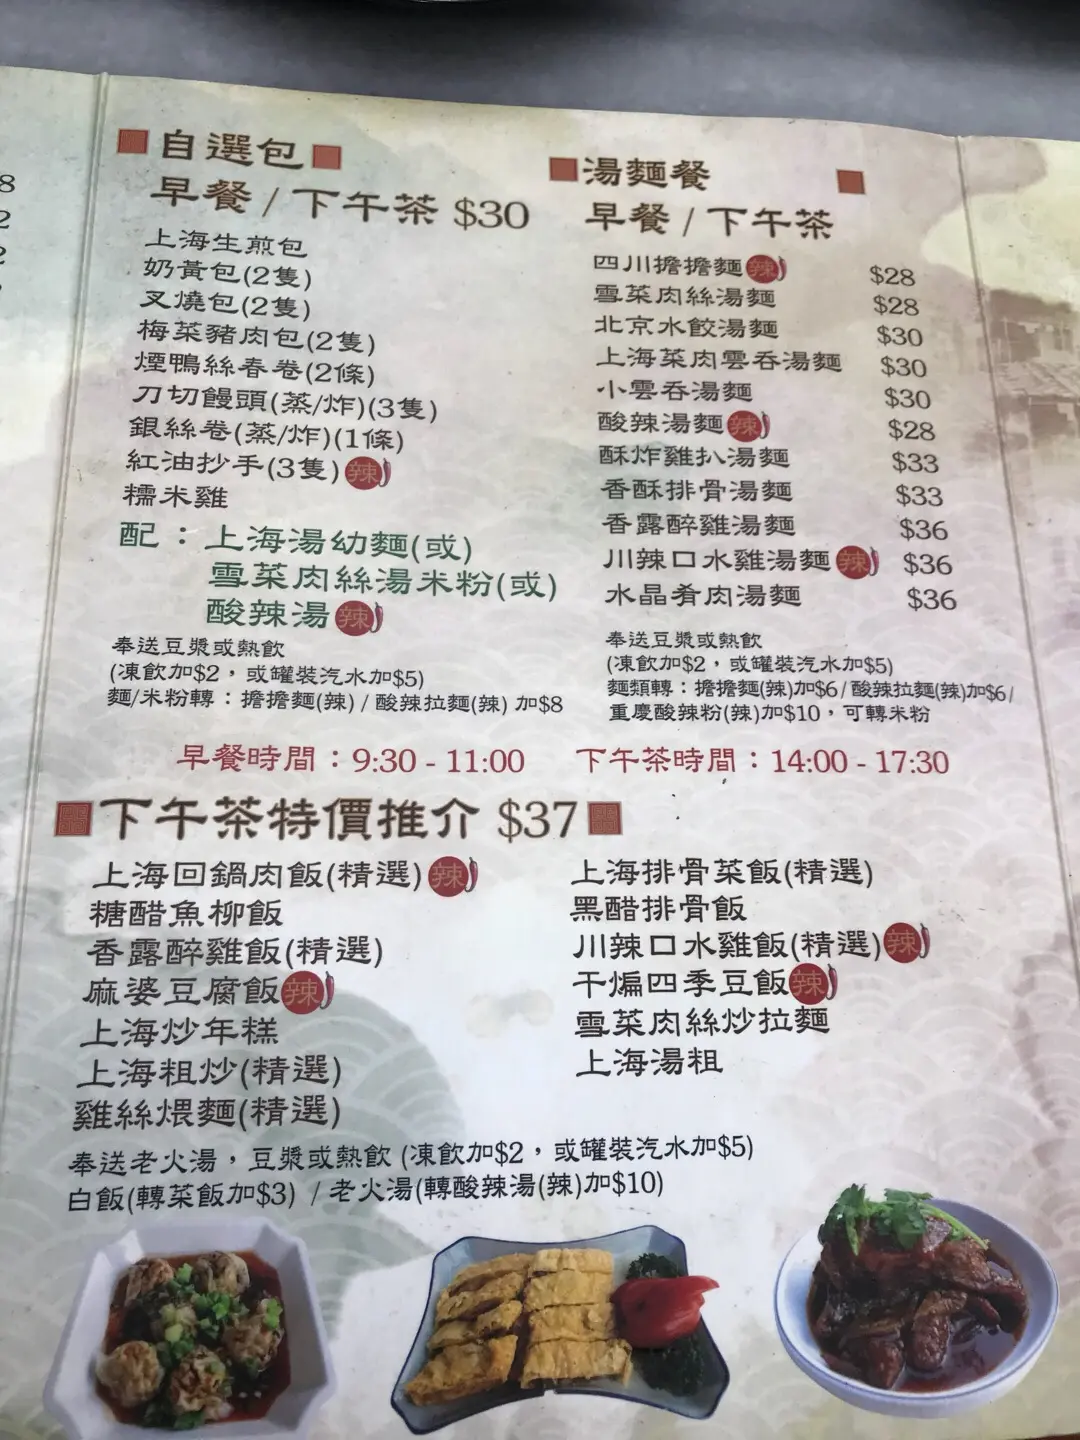 自選包
早餐 / 下午茶 $30
上海生煎包
奶黃包(2隻)
叉燒包(2隻)
梅菜豬肉包(2隻)
煙鴨絲春卷(2條)
刀切饅頭(蒸/炸)(3隻)
銀絲卷(蒸/炸)(1條)
紅油抄手(3隻) 辣
糯米雞
配：上海湯幼麵(或)
雪菜肉絲湯米粉(或)
酸辣湯 辣
奉送豆漿或熱飲
(凍飲加$2，或罐裝汽水加$5)
麵/米粉轉：擔擔麵(辣) / 酸辣拉麵(辣) 加$8
湯麵餐
早餐 / 下午茶
四川擔擔麵 辣 $28
雪菜肉絲湯麵 $28
北京水餃湯麵 $30
上海菜肉雲吞湯麵 $30
小雲吞湯麵 $30
酸辣湯麵 辣 $28
酥炸雞扒湯麵 $33
香酥排骨湯麵 $33
香露醉雞湯麵 $36
川辣口水雞湯麵 辣 $36
水晶肴肉湯麵 $36
奉送豆漿或熱飲
(凍飲加$2，或罐裝汽水加$5)
麵類轉：擔擔麵(辣)加$6 / 酸辣拉麵(辣)加$6 /
重慶酸辣粉(辣)加$10，可轉米粉
早餐時間：9:30 - 11:00 下午茶時間：14:00 - 17:30
下午茶特價推介 $37
上海回鍋肉飯(精選) 辣
糖醋魚柳飯
香露醉雞飯(精選)
麻婆豆腐飯 辣
上海炒年糕
上海粗炒(精選)
雞絲煨麵(精選)
上海排骨菜飯(精選)
黑醋排骨飯
川辣口水雞飯(精選) 辣
干煸四季豆飯 辣
雪菜肉絲炒拉麵
上海湯粗
奉送老火湯，豆漿或熱飲 (凍飲加$2，或罐裝汽水加$5)
白飯(轉菜飯加$3) / 老火湯(轉酸辣湯(辣)加$10)